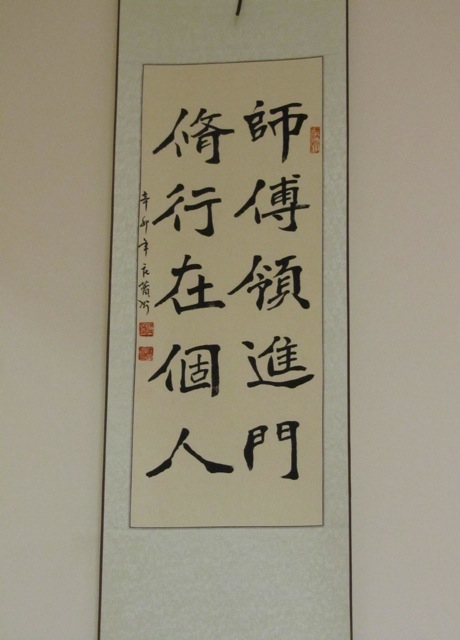 師傅領進門
脩行在個人
辛卯年